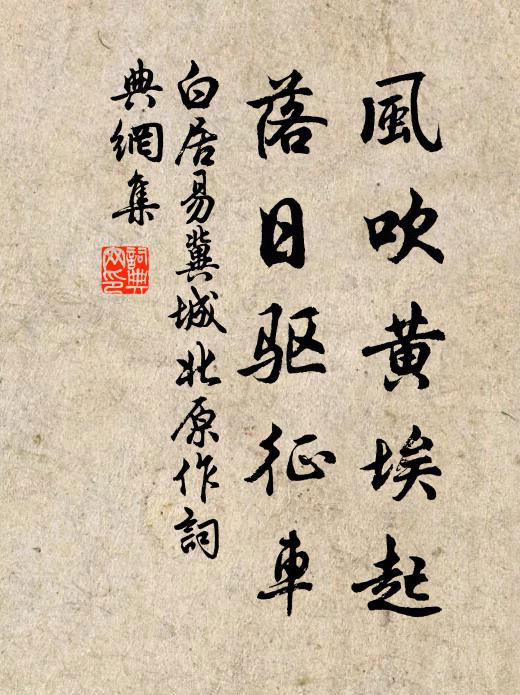 風吹黄埃起
落日驱征車
白居易冀城北原作詞
典網集
詞典